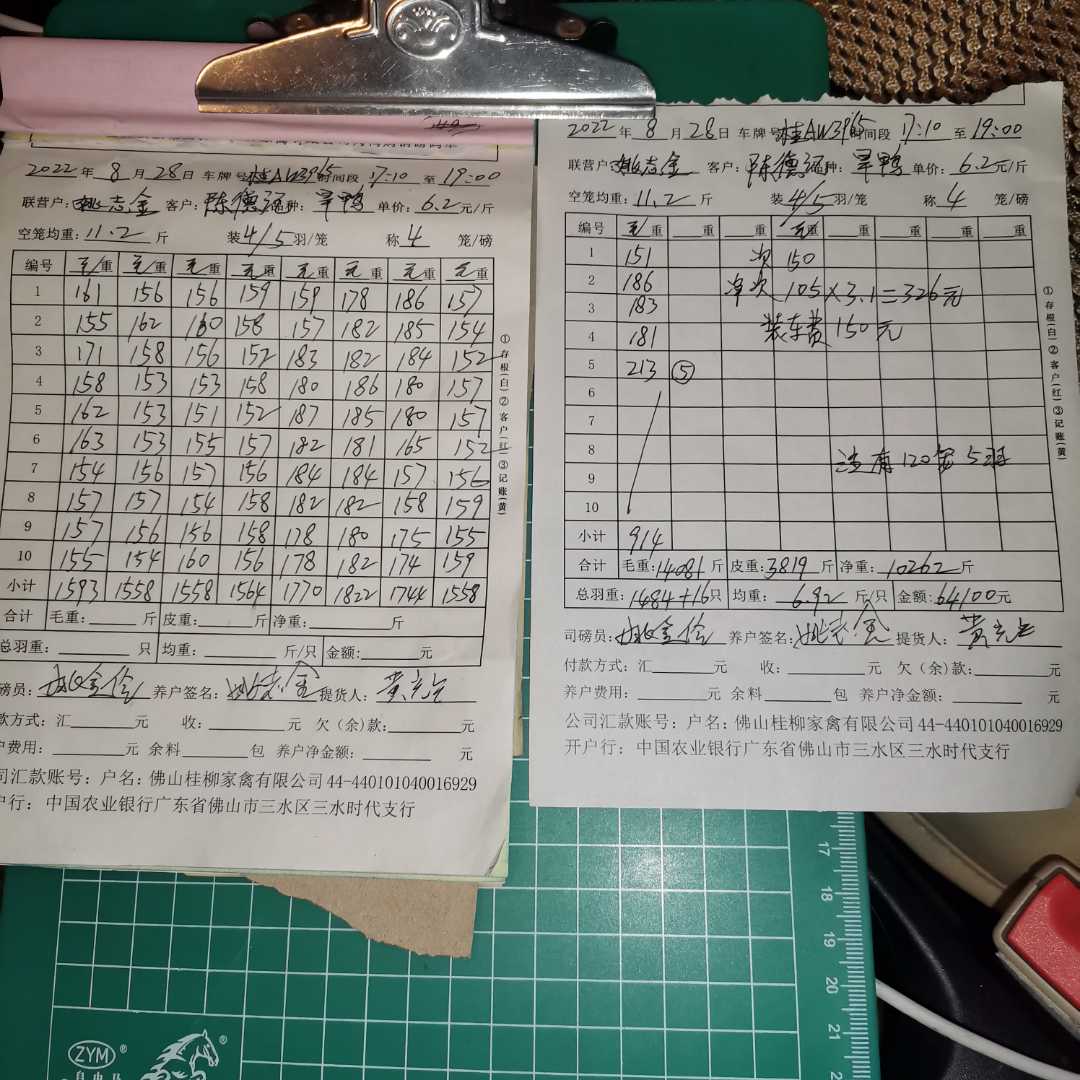 2022年8月28日 车牌号桂AW3965时间段17:10至19:00
联营户:姚志金 客户:陈德福品种:旱鸭 单价:6.2元/斤
空笼均重:11.2斤 装4/5羽/笼 称4笼/磅
编号 毛重 毛重 毛重 毛重 毛重 毛重 毛重 毛重
1 161 156 156 159 159 178 186 157
2 155 162 160 158 157 182 185 154
3 171 158 156 152 183 182 184 152
4 158 153 153 158 180 186 180 157
5 162 153 151 152 187 185 180 157
6 163 153 155 157 182 181 165 152
7 154 156 157 156 184 184 157 156
8 157 157 154 158 182 182 158 159
9 157 156 156 158 178 180 175 155
10 155 154 160 156 178 182 174 159
小计 1593 1558 1558 1564 1770 1822 1744 1558
合计 毛重:斤 皮重:斤 净重:斤
总羽重:只 均重:斤/只 金额:元
磅员: 养户签名:姚志金 提货人:
款方式:汇元 收:元 欠(余)款:元
户费用:元 余料包 养户净金额:元
司汇款账号:户名:佛山桂柳家禽有限公司44-440101040016929
户行:中国农业银行广东省佛山市三水区三水时代支行
①存根(白)②客户(红)③记账(黄)
2022年8月28日 车牌号桂AW3965时间段17:10至19:00
联营户:姚志金 客户:陈德福品种:旱鸭 单价:6.2元/斤
空笼均重:11.2斤 装4/5羽/笼 称4笼/磅
编号 毛重 重 重 毛重 重 重 重 重
1 151 次 150
2 186 净次 105×3.1=326元
3 183
4 181 装车费150元
5 213 ⑤
6
7
8 120 5
9
10
小计 914
合计 毛重:14081斤 皮重:3819斤 净重:10262斤
总羽重:1484+16只 均重:6.92斤/只 金额:64100元
司磅员: 养户签名:姚志金 提货人:
付款方式:汇元 收:元 欠(余)款:元
养户费用:元 余料包 养户净金额:元
公司汇款账号:户名:佛山桂柳家禽有限公司44-440101040016929
开户行:中国农业银行广东省佛山市三水区三水时代支行
①存根(白)②客户(红)③记账(黄)
17
18
19
20
21
ZYM®
®